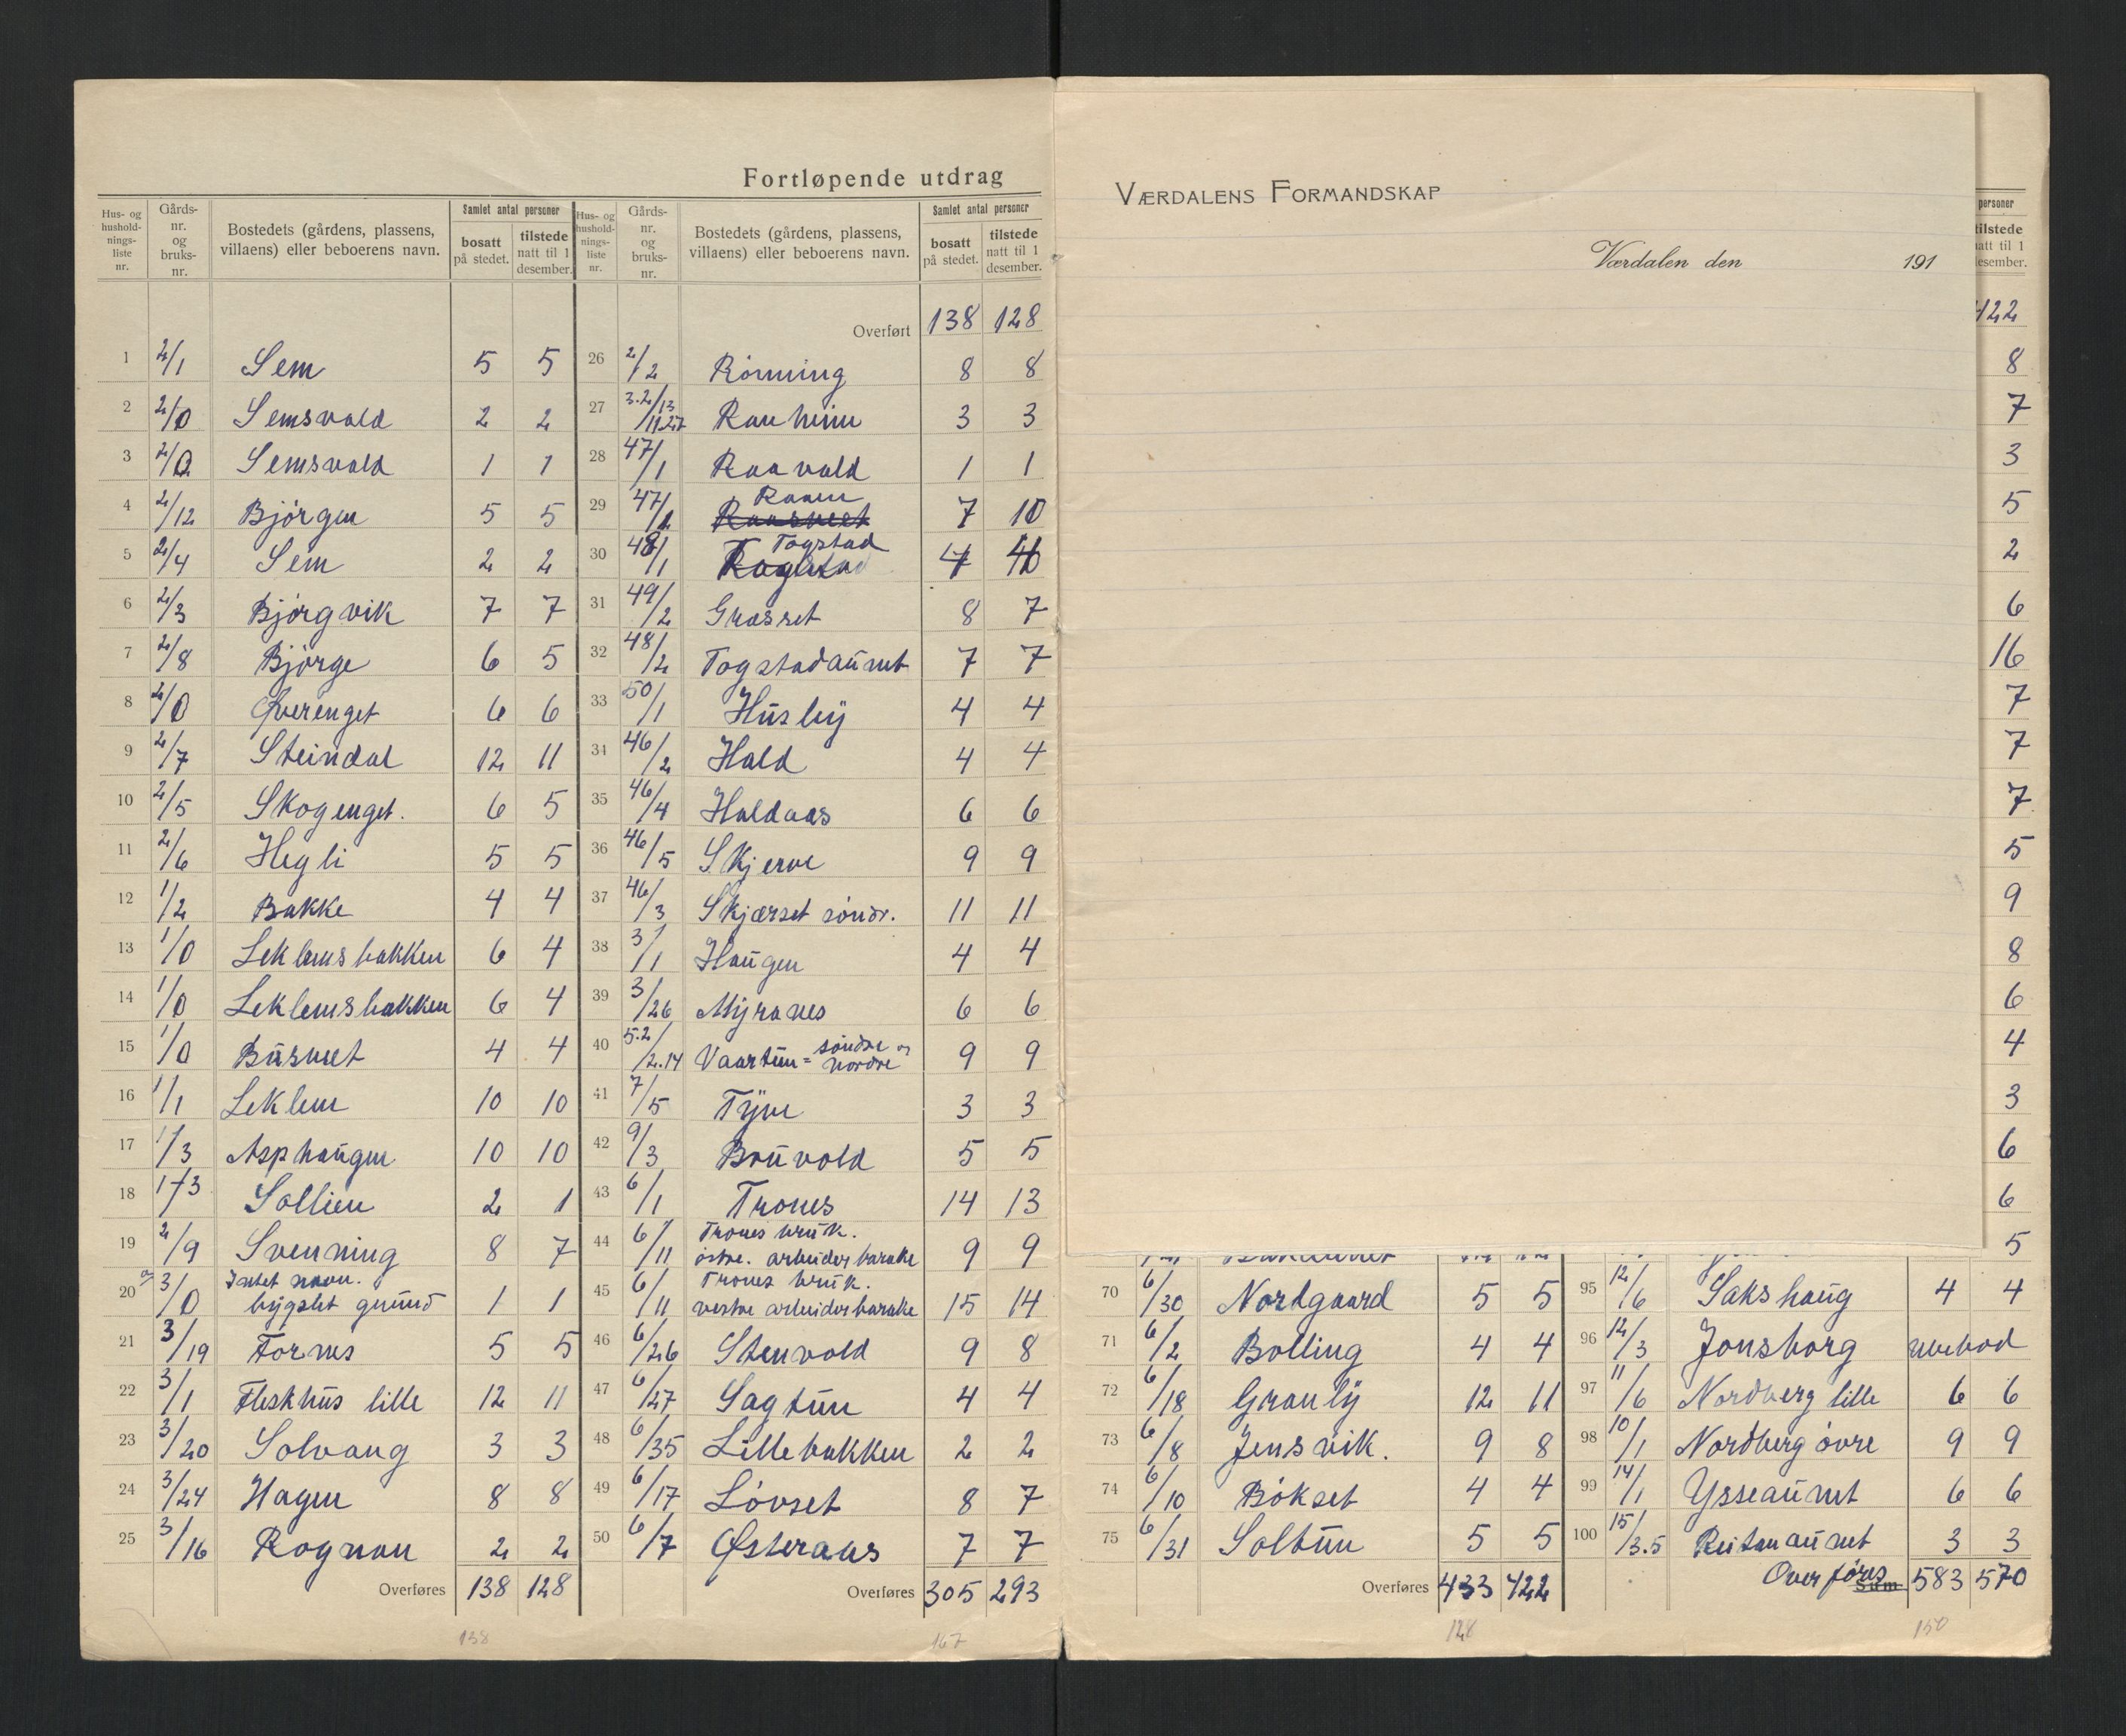 Fortløpende utdrag
Hus- og husholdningsliste nr. Gårds-nr. og bruks-nr. Bostedets (gårdens, plassens, villaens) eller beboerens navn. Samlet antal personer bosatt på stedet. tilstede natt til 1 desember.
1 2/1 Sem 5 5
2 2/0 Semsvald 2 2
3 2/0 Semsvald 1 1
4 2/12 Bjørgen 5 5
5 2/4 Sem 2 2
6 2/3 Bjørgvik 7 7
7 2/8 Bjørge 6 5
8 2/0 Øverenget 6 6
9 2/7 Steindal 12 11
10 2/5 Skogenget. 6 5
11 2/6 Hegli 5 5
12 1/2 Bakke 4 4
13 1/0 Leklemsbakken 6 4
14 1/0 Leklemsbakken 6 4
15 1/0 Busvet 4 4
16 1/1 Leklem 10 10
17 1/3 Asphaugen 10 10
18 1/3 Sollien 2 1
19 2/9 Svenning 8 7
20 3/0 Intet navn.
bygslet grund 1 1
21 3/19 Fornes 5 5
22 3/1 Fleskhus lille 12 11
23 3/20 Solvang 3 3
24 3/24 Hagen 8 8
25 3/16 Rognan 2 2
Overføres 138 128
138
Hus- og husholdningsliste nr. Gårds-nr. og bruks-nr. Bostedets (gårdens, plassens, villaens) eller beboerens navn. Samlet antal personer bosatt på stedet. tilstede natt til 1 desember.
Overført 138 128
26 2/2 Rønning 8 8
27 3.2/13 11.27 Ranheim 3 3
28 47/1 Raavald 1 1
29 47/1 Raaen 7 10
30 48/1 Togstad
31 49/2 Græsset 8 7
32 48/2 Togstadaunet 7 7
33 50/1 Husby 4 4
34 46/2 Hald 4 4
35 46/4 Haldaas 6 6
36 46/5 Skjerve 9 9
37 46/3 Skjærset søndr. 11 11
38 3/1 Haugen 4 4
39 3/26 Myranes 6 6
40 5.2/2.14 Vaartun = søndre og
nordre 9 9
41 7/5 Tyve 3 3
42 9/3 Bruvold 5 5
43 6/1 Trones 14 13
44 6/11 Trones bruk.
østre. arbeiderbarakke 9 9
45 6/11 Trones bruk.
vestre arbeiderbarakke 15 14
46 6/26 Stenvold 9 8
47 6/27 Sagtun 4 4
48 6/35 Lillebakken 2 2
49 6/17 Løvset 8 7
50 6/7 Østeraas 7 7
Overføres 305 293
167
VÆRDALENS FORMANDSKAP
Værdalen den 191
70 6/30 Nordgaard 5 5
71 6/2 Bolling 4 4
72 6/18 Granly 12 11
73 6/8 Jensvik. 9 8
74 6/10 Bøkset 4 4
75 6/31 Soltun 5 5
Overføres 433 422
128
personer
tilstede
natt til 1
desember.
422
8
7
3
5
2
6
16
7
7
7
5
9
8
6
4
3
6
6
5
95 12/6 Sakshaug 4 4
96 12/3 Jonsborg ubebod
97 11/6 Nordberg lille 6 6
98 10/1 Nordberg øvre 9 9
99 14/1 Ysseaunet 6 6
100 15/3.5 Reitanaunet 3 3
Overføres Sum 583 570
150